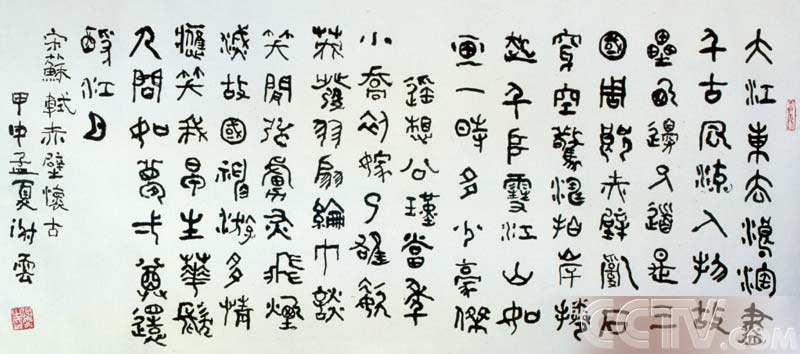 大江東去浪淘盡
千古風流人物故
壘西邊人道是三
國周郎赤壁亂石
穿空驚濤拍岸捲
起千堆雪江山如
画一時多少豪傑
遥想公瑾當年
小喬初嫁了雄姿
英發羽扇綸巾談
笑間强虜灰飛煙
滅故國神游多情
應笑我早生華髮
人間如夢一尊還
酹江月
宋蘇軾赤壁懷古
甲申孟夏謝雲
CCTV.com